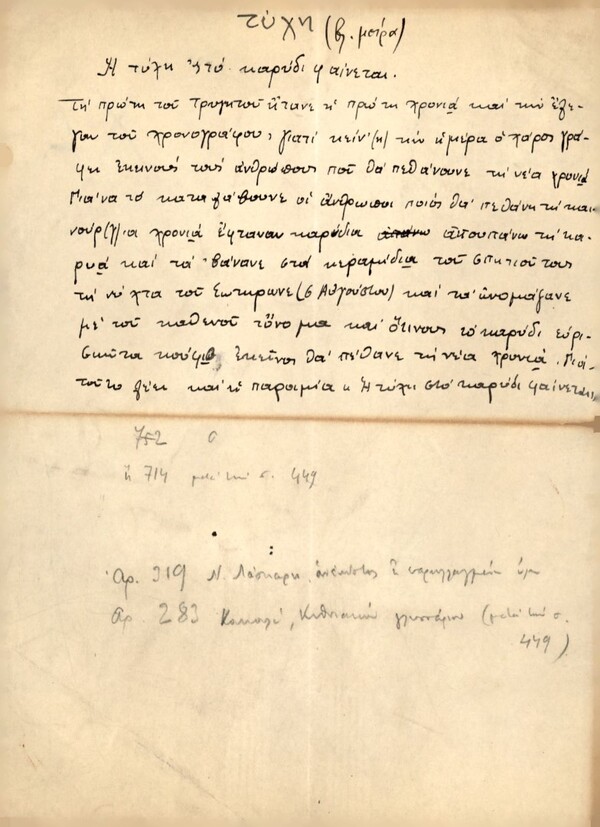 τύχη (βλ. μοίρα)
Ἡ τύχη 'στό καρύδι φαίνεται.
Τη πρώτη τοῦ Τρυγητοῦ ἤτανε ἡ πρώτη χρονιά καί την ἔλε-
γαν τοῦ χρονογράφου, γιατί κείν(η) τήν ἡμέρα ὁ χάρος γρά-
φει ἐκεινούς τούς ἀνθρώπους ποῦ θά πεθάνουνε τη νεία χρονιά
Γιά νά τό καταλάβουνε οἱ ἄνθρωποι ποιός θά πεθάνη τη και-
νούρ(γ)ια χρονιά ἔφταναν καρύδια ἀπουπάνω τη κα-
ρυά καί τά βάνανε στά κεραμίδια τοῦ σπιτιοῦ τους
τη νύχτα τοῦ Σωτηρωνε (6 Αὐγούστου) καί τά ὀνομάζανε
μέ τοῦ καθενοῦ τὄνομα καί ὅτινους τό καρύδι εὑρί-
σκουτα κούφιο, ἐκεῖνος θά πέθανε τη νεία χρονιά. Γιά
τοῦτο λέει καί ἡ παροιμία « Ἡ τύχη στό καρύδι φαίνεται»
752
ἤ 714 μετά τήν σ. 449
Ἀρ. 319 Ν. Λάσκαρη,
Ἀρ. 283 Κυθνιακόν γλωσσάριο (μετά τήν σ.
449)